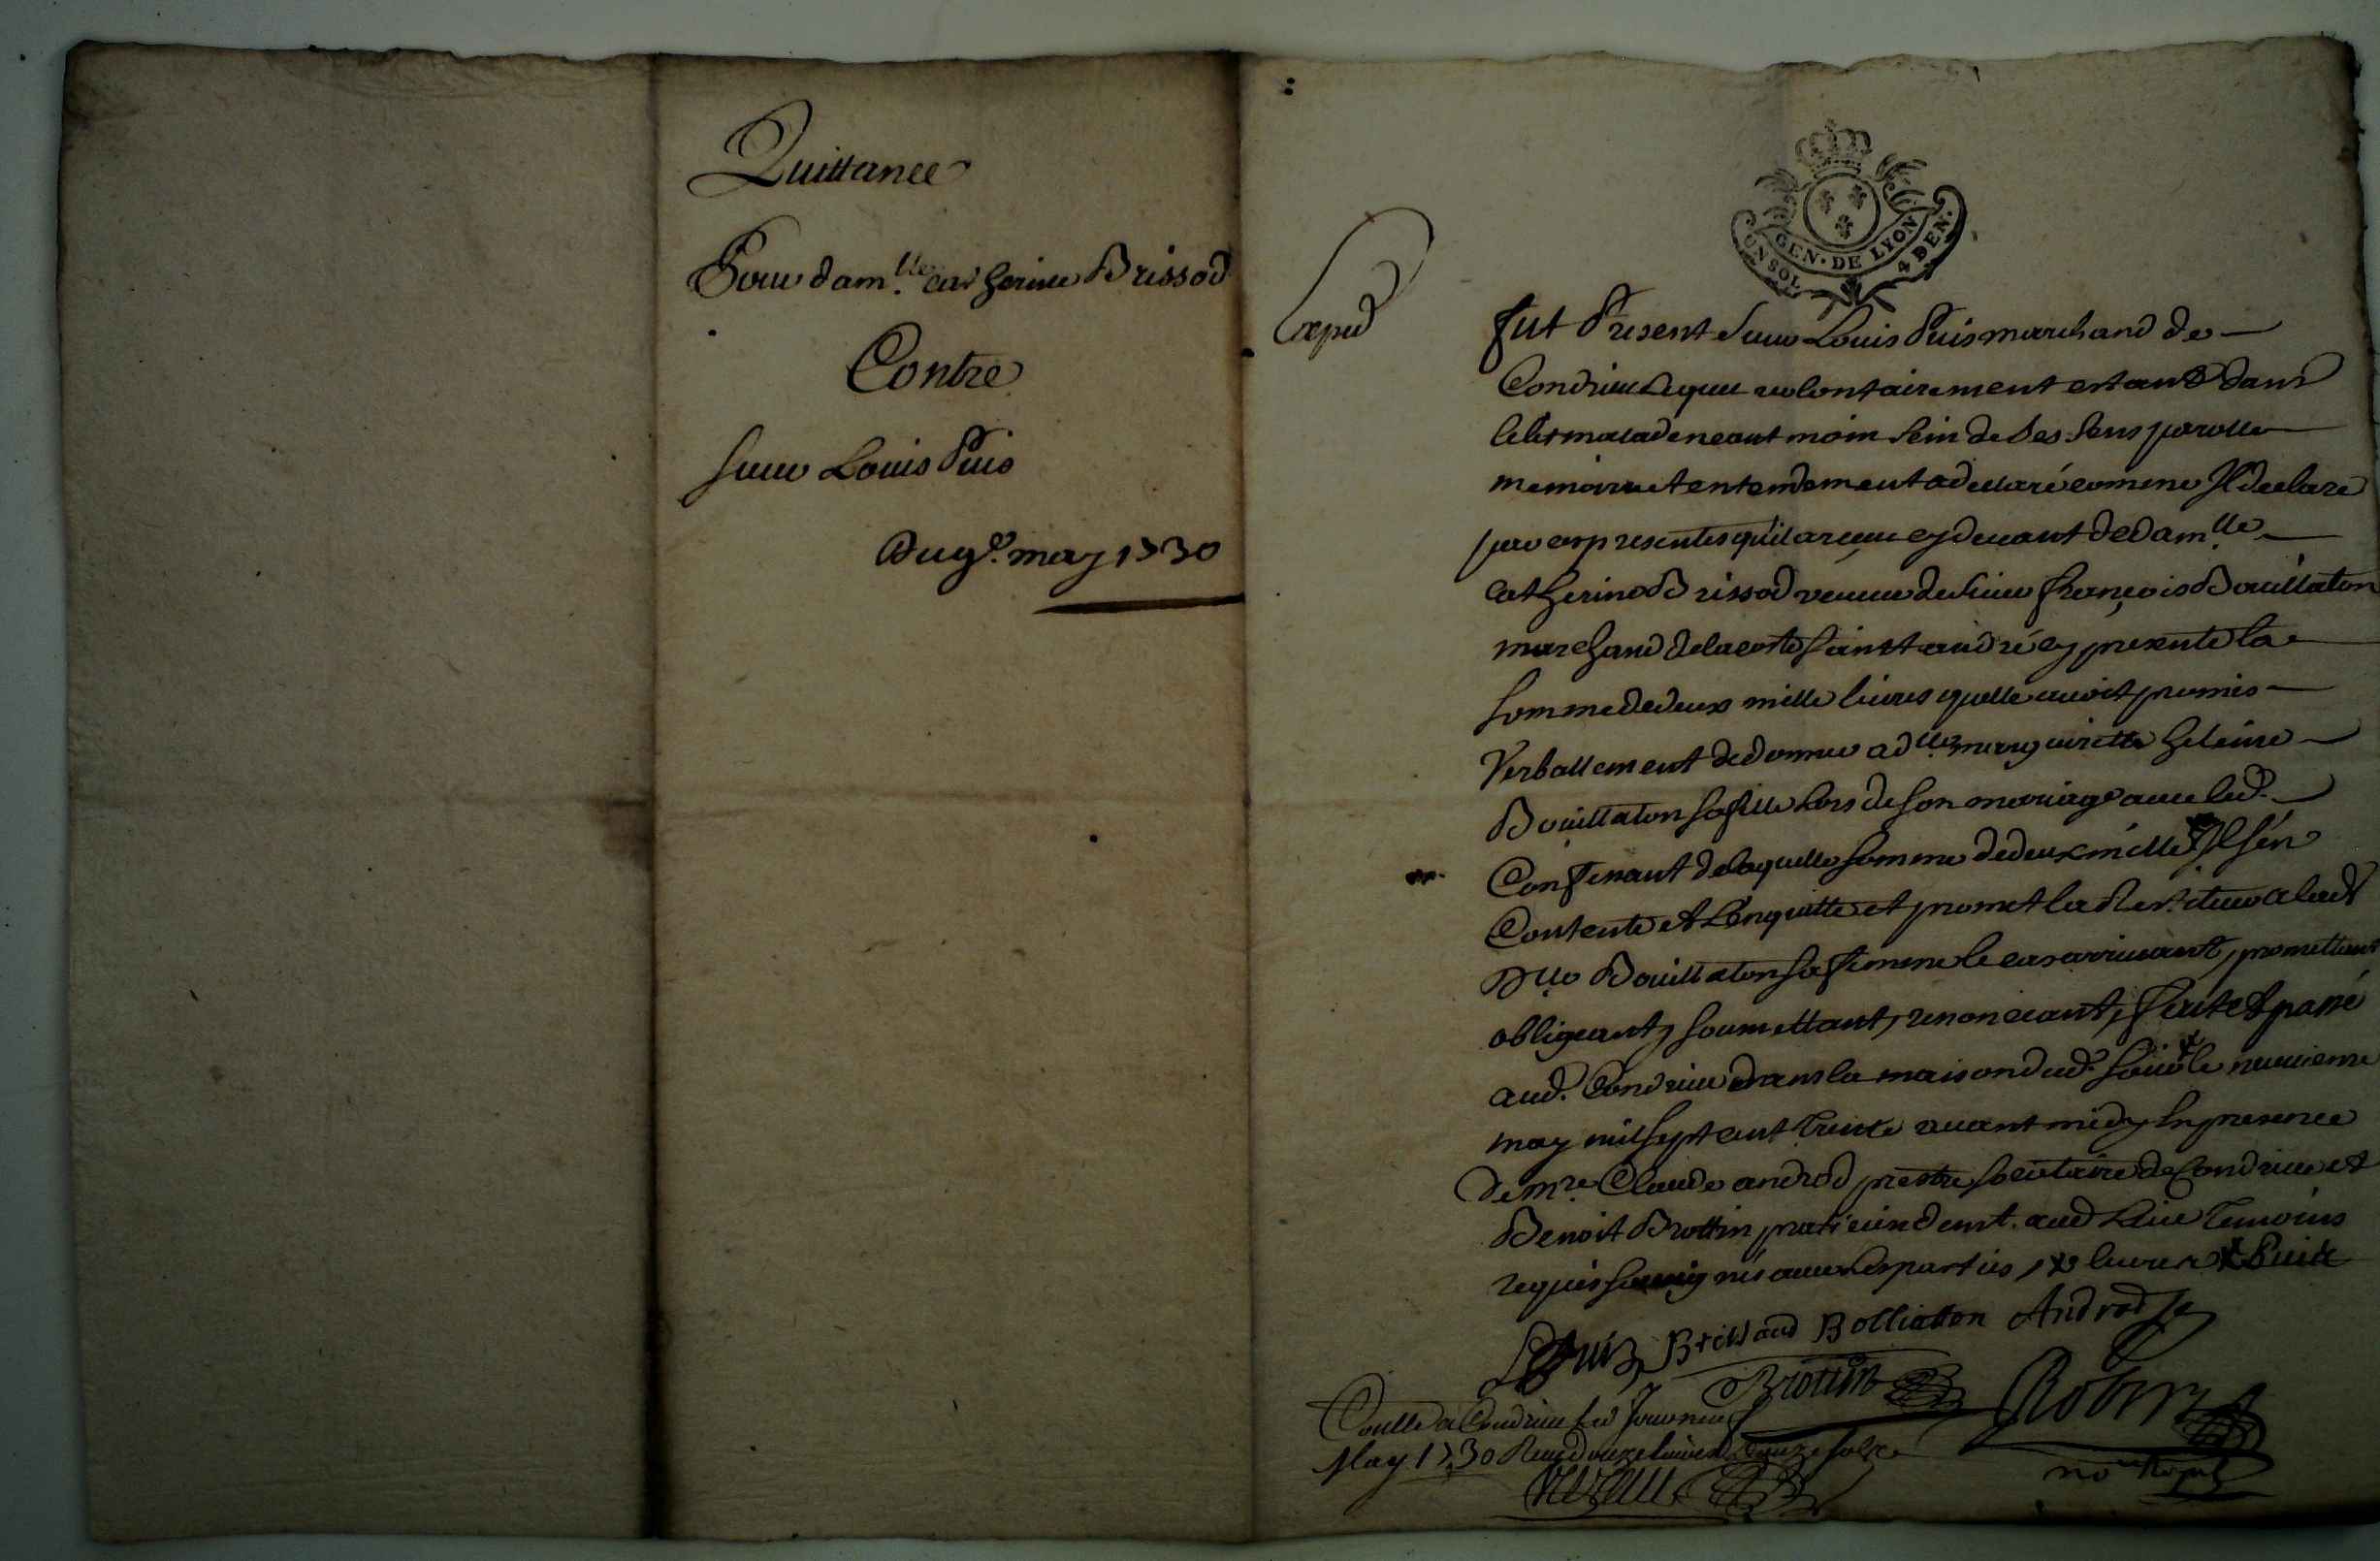 Quittance
Pour dam.lle catherine Brissod
Contre
sieur Louis Puis
Du 9.e may 1730
Exped
GEN. DE LYON
UN SOL 4 DEN.
fut Present sieur Louis Puis marchand de
Condrieu Lequel volontairement estant dans
le lit malade neant moin sein de ses sens parolle
memoire et entendement a declaré comme Il declare
par ces presentes qu'il a reçeu cy devant de dam.lle
catherine Brissod veuve de sieur françois Bouillaton
marchand de la coste saint andré cy presente la
somme de deux mille livres quelle avoit promis
Verballement de donner a d.lle marguirette heleine
Bouillaton sa fille Lors de son mariage avec led.
Confessant de laquelle somme de deux mille Il s'en
Contente et L'en quitte et promet la Restituer a lad.
D.lle Bouillaton sa femme le cas arrivant, promettant
obligeant, soumettant, renonceant, fait et passé
aud. Condrieu dans la maison dud. sieur le neuvieme
may mil sept cent trente avant midy En presence
de m.re Claude androd prestre societaire de Condrieu et
Benoit Brottin praticien demt. aud Lieu temoins
requis soussignés avec les parties, livres Puis
L Puis Brissaud Bolliatton Androd
Brottin
Robin
no.re Royal
Conllé a Condrieu le neuf
May 1730 Reçu douze livres douze sols